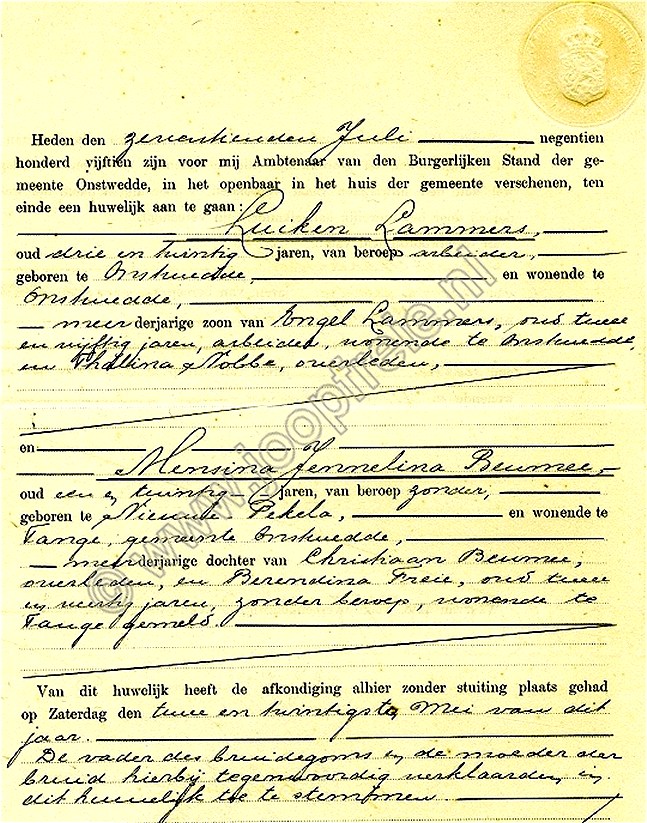 Heden den zeventienden Juli negentien
honderd vijftien zijn voor mij Ambtenaar van den Burgerlijken Stand der ge-
meente Onstwedde, in het openbaar in het huis der gemeente verschenen, ten
einde een huwelijk aan te gaan:
Luiken Lammers,
oud drie en twintig jaren, van beroep arbeider,
geboren te Onstwedde, en wonende te
Onstwedde,
meerderjarige zoon van Engel Lammers, oud twee
en vijftig jaren, arbeider, wonende te Onstwedde,
en Thalina Nobbe, overleden,
en
Mensina Jennelina Beumee,
oud een en twintig jaren, van beroep zonder,
geboren te Nieuwe Pekela, en wonende te
Tange, gemeente Onstwedde,
meerderjarige dochter van Christiaan Beumee,
overleden, en Berendina Freie, oud twee
en veertig jaren, zonder beroep, wonende te
Tange gemeld.
Van dit huwelijk heeft de afkondiging alhier zonder stuiting plaats gehad
op Zaterdag den twee en twintigste Mei van dit
jaar.
De vader des bruidegoms en de moeder der
bruid hierbij tegenwoordig verklaarden in
dit huwelijk toe te stemmen.
© www.joopfreie.nl